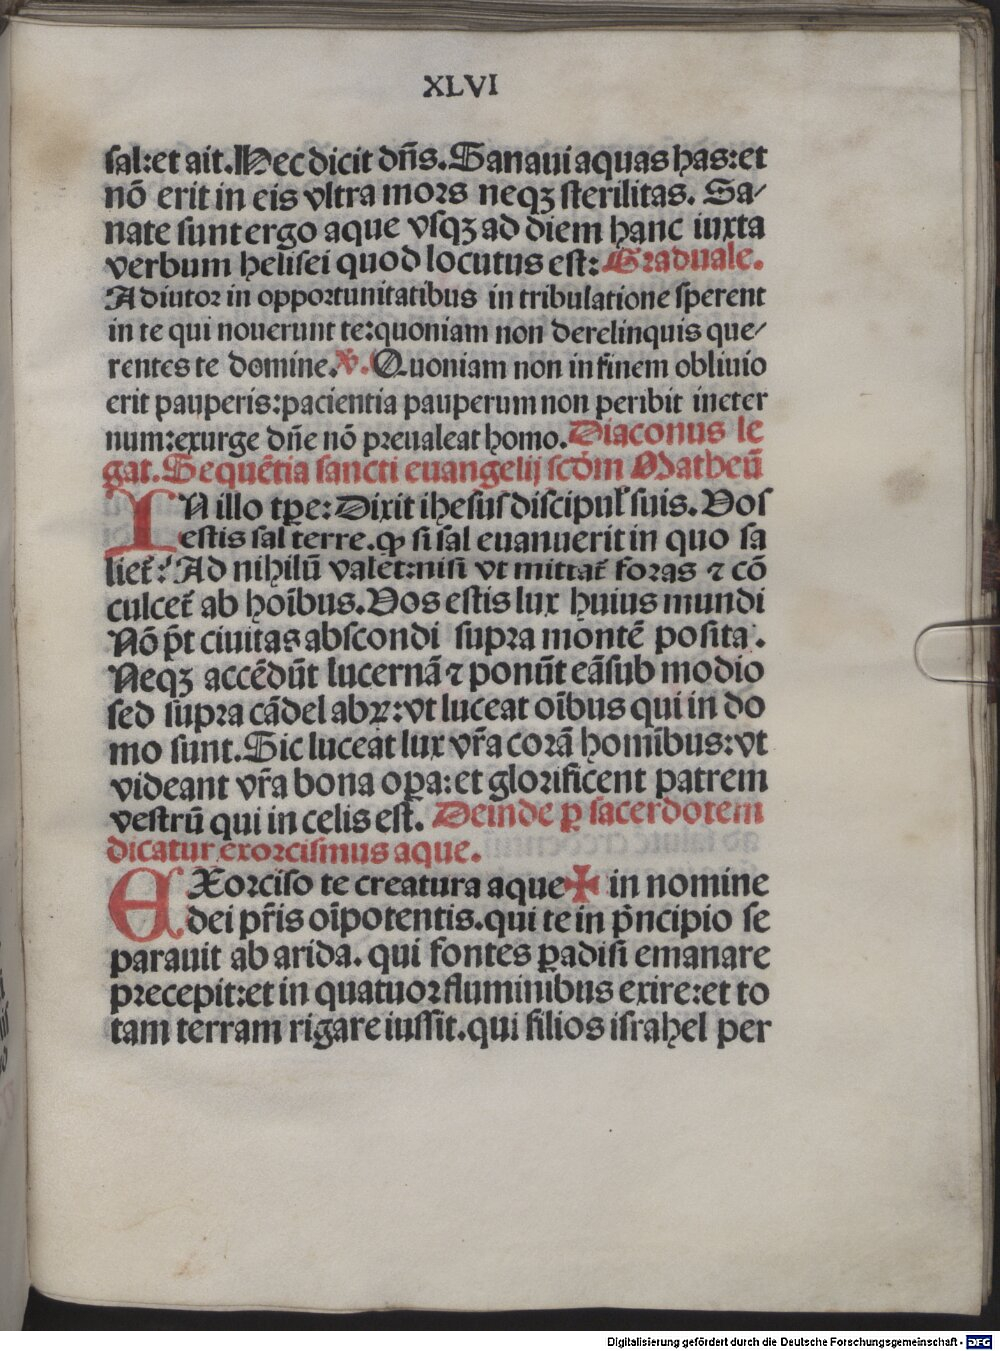 XLVI
sal:et ait.Hec dicit dn̄s.Sanaui aquas has:et
nō erit in eis vltra mors neqꝫ sterilitas. Sa⸗
nate sunt ergo aque vsqꝫ ad diem hanc iuxta
verbum helisei quod locutus est: Graduale.
Adiutor in opportunitatibus in tribulatione sperent
in te qui nouerunt te:quoniam non derelinquis que⸗
rentes te domine. ℣. Quoniam non in finem obliuio
erit pauperis:pacientia pauperum non peribit ineter
num:exurge dn̄e nō preualeat homo. Diaconus le
gat. Sequētia sancti euangelij scd̄m Matheū
IN illo tꝑe: Dixit ihesus discipul̉ suis. Vos
estis sal terre.ꝙ si sal euanuerit in quo sa
liet̄? Ad nihilū valet:nisi vt mittat̄ foras ⁊ cō
culcet̄ ab hoībus.Vos estis lux huius mundi
Nō pt̄ ciuitas abscondi supra montē posita.
Neqꝫ accēdūt lucernā ⁊ ponūt eā sub modio
sed supra cādelabꝝ:vt luceat oībus qui in do
mo sunt.Sic luceat lux vr̄a corā homībus:vt
videant vr̄a bona oꝑa:et glorificent patrem
vestrū qui in celis est. Deinde ꝑ sacerdotem
dicatur exorcismus aque.
EXorciso te creatura aque ✠ in nomine
dei pr̄is oīpotentis.qui te in pͥncipio se
parauit ab arida. qui fontes ꝑadisi emanare
precepit:et in quatuor fluminibus exire:et to
tam terram rigare iussit.qui filios israhel per
Digitalisierung gefördert durch die Deutsche Forschungsgemeinschaft - DFG